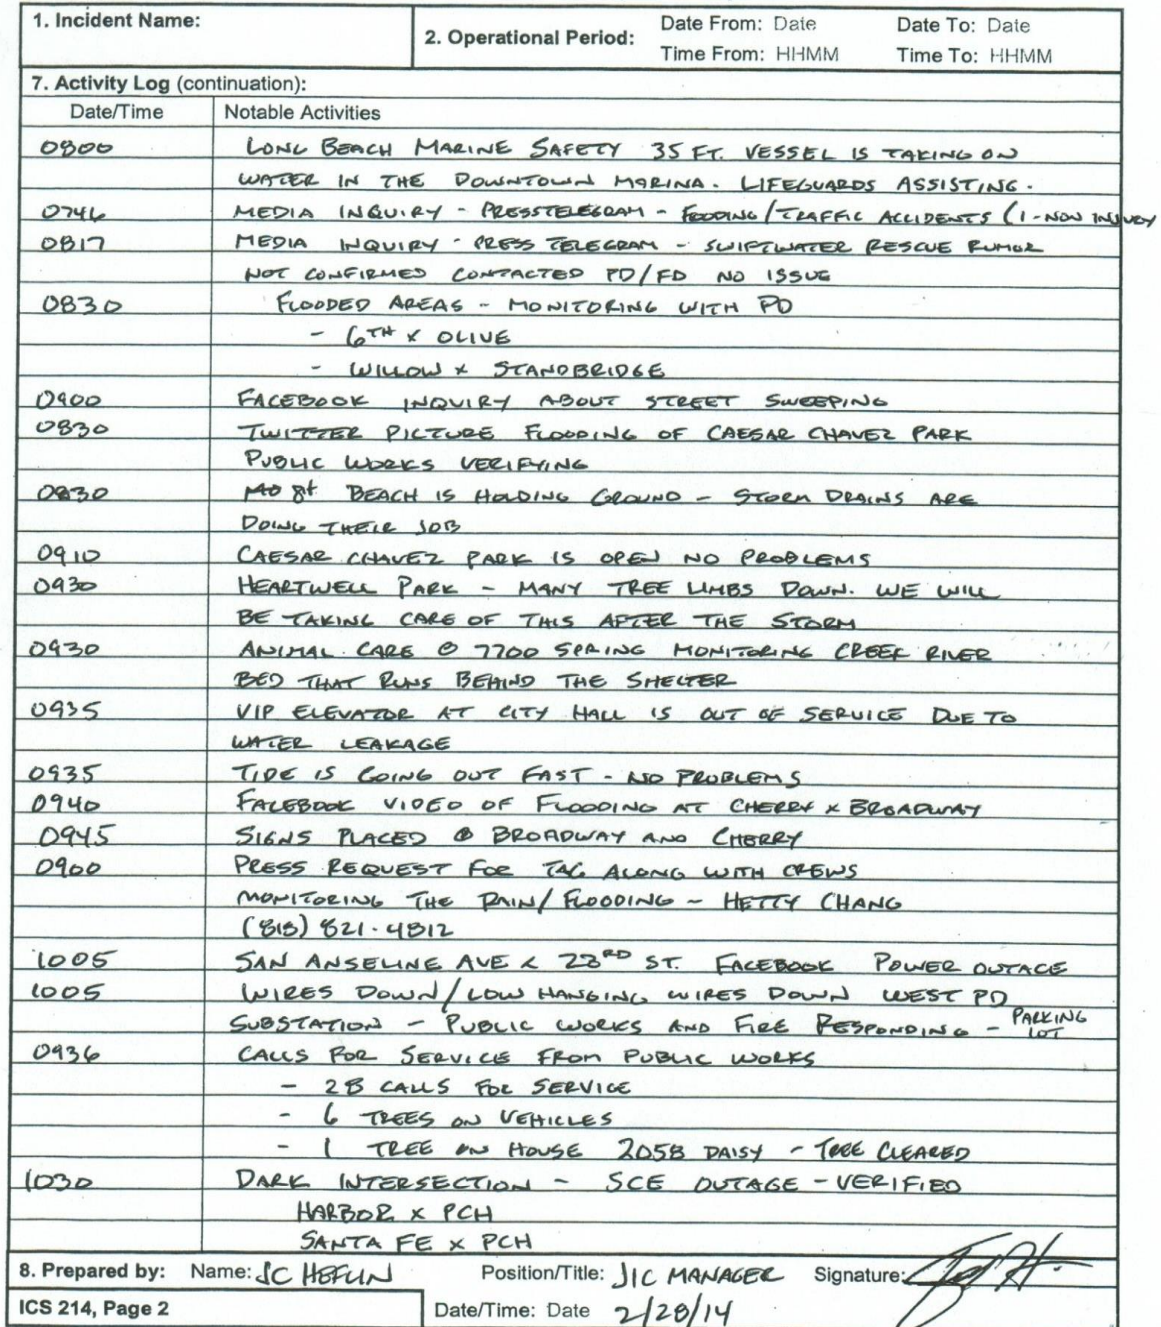 1. Incident Name:
2. Operational Period: Date From: Date Date To: Date
Time From: HHMM Time To: HHMM
7. Activity Log (continuation):
Date/Time Notable Activities
0800 LONG BEACH MARINE SAFETY 35 FT. VESSEL IS TAKING ON
WATER IN THE DOWNTOWN MARINA. LIFEGUARDS ASSISTING.
0746 MEDIA INQUIRY - PRESSTELEGRAM - FOODING/TRAFFIC ACCIDENTS (1-NON INJURY
0817 MEDIA INQUIRY - PRESS TELEGRAM - SWIFTWATER RESCUE RUMOR
NOT CONFIRMED CONTACTED PD/FD NO ISSUE
0830 FLOODED AREAS - MONITORING WITH PD
- 6TH x OLIVE
- WILLOW x STANDBRIDGE
0900 FACEBOOK INQUIRY ABOUT STREET SWEEPING
0830 TWITTER PICTURE FLOODING OF CAESAR CHAVEZ PARK
PUBLIC WORKS VERIFYING
0830 BEACH IS HOLDING GROUND - STORM DRAINS ARE
DOING THEIR JOB
0910 CAESAR CHAVEZ PARK IS OPEN NO PROBLEMS
0930 HEARTWELL PARK - MANY TREE LIMBS DOWN. WE WILL
BE TAKING CARE OF THIS AFTER THE STORM
0930 ANIMAL CARE @ 7700 SPRING MONITORING CREEK RIVER
BED THAT RUNS BEHIND THE SHELTER
0935 VIP ELEVATOR AT CITY HALL IS OUT OF SERVICE DUE TO
WATER LEAKAGE
0935 TIDE IS GOING OUT FAST - NO PROBLEMS
0940 FACEBOOK VIDEO OF FLOODING AT CHERRY x BROADWAY
0945 SIGNS PLACED @ BROADWAY AND CHERRY
0900 PRESS REQUEST FOR TAG ALONG WITH CREWS
MONITORING THE RAIN/FLOODING - HETTY CHANG
(818) 821-4812
1005 SAN ANSELINE AVE x 23RD ST. FACEBOOK POWER OUTAGE
1005 WIRES DOWN/LOW HANGING WIRES DOWN WEST PD
SUBSTATION - PUBLIC WORKS AND FIRE RESPONDING - PARKING LOT
0936 CALLS FOR SERVICE FROM PUBLIC WORKS
- 28 CALLS FOR SERVICE
- 6 TREES ON VEHICLES
- 1 TREE ON HOUSE 2058 DAISY - TREE CLEARED
1030 DARK INTERSECTION - SCE OUTAGE - VERIFIED
HARBOR x PCH
SANTA FE x PCH
8. Prepared by: Name: JC HEFLIN Position/Title: JIC MANAGER Signature:
ICS 214, Page 2 Date/Time: Date 2/28/14